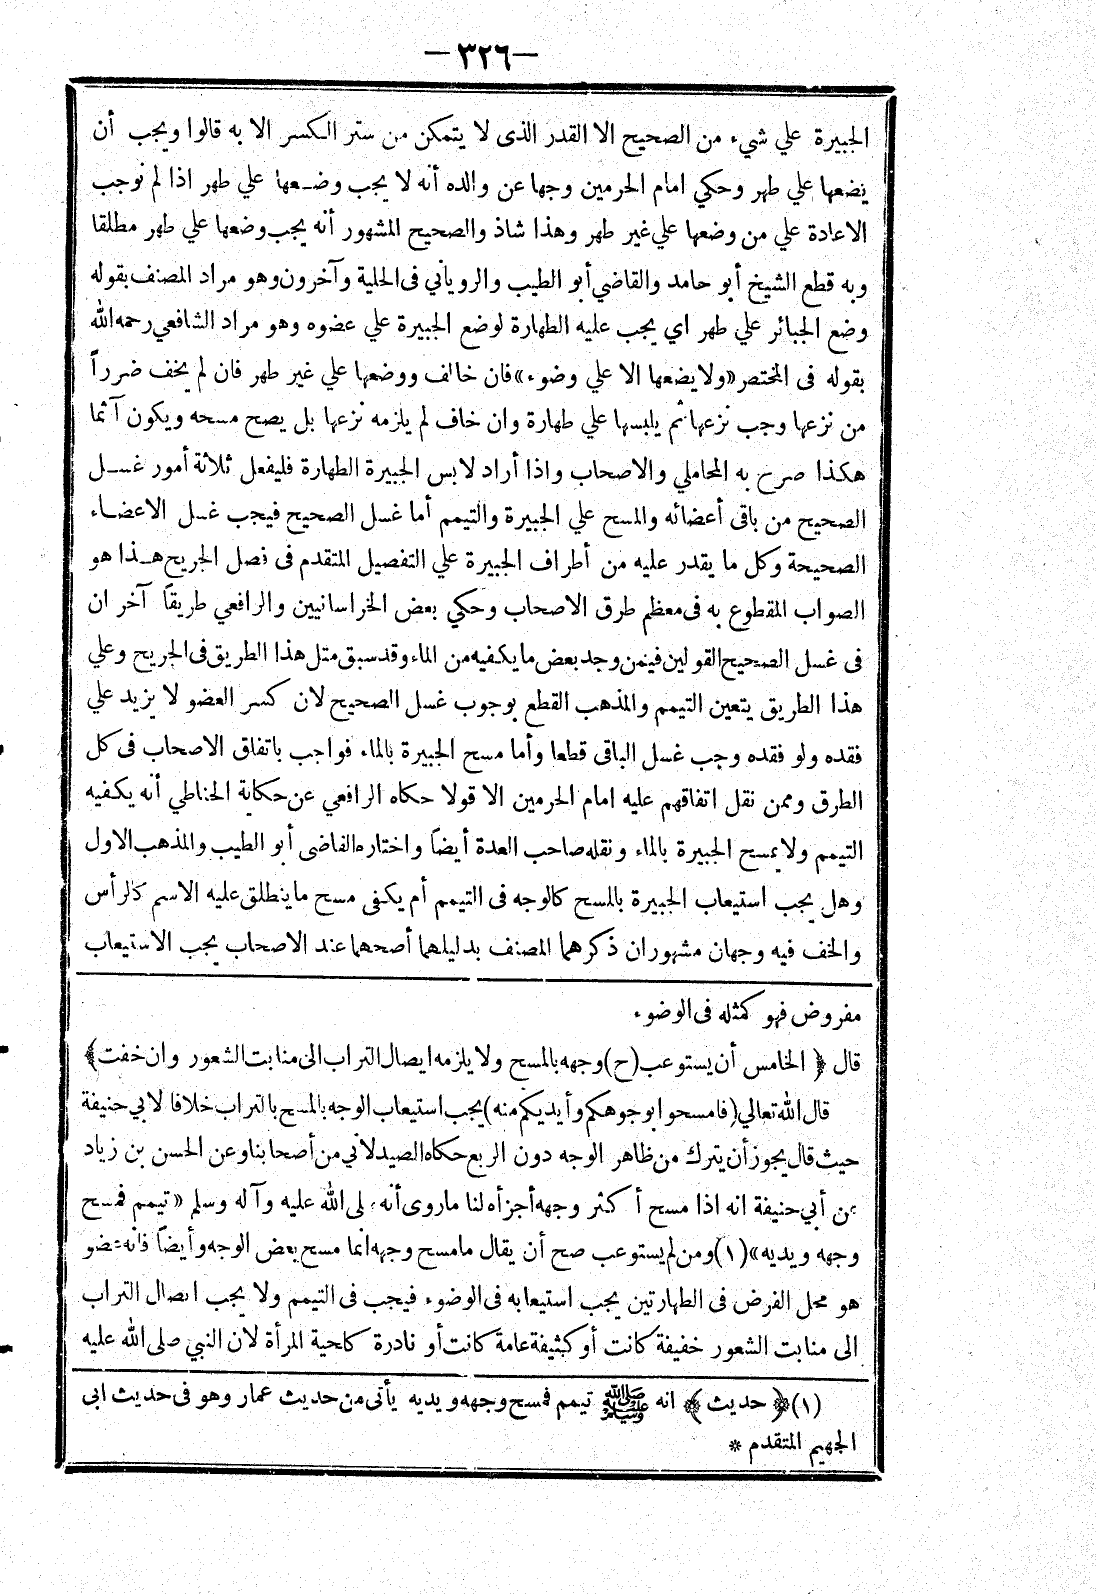 —٣٢٦—
الجبيرة علي شيء من الصحيح الا القدر الذى لا يتمكن من ستر الكسر الا به قالوا ويجب أن
يضعها علي طهر وحكي امام الحرمين وجها عن والده أنه لا يجب وضعها علي طهر اذا لم نوجب
الاعادة علي من وضعها علي غير طهر وهذا شاذ والصحيح المشهور أنه يجب وضعها علي طهر مطلقا
وبه قطع الشيخ أبو حامد والقاضي أبو الطيب والروياني فى الحلية وآخرون وهو مراد المصنف بقوله
وضع الجبائر علي طهر اي يجب عليه الطهارة لوضع الجبيرة علي عضوه وهو مراد الشافعي رحمه الله
بقوله فى المختصر «ولا يضعها الا علي وضوء» فان خالف ووضعها علي غير طهر فان لم يخف ضرراً
من نزعها وجب نزعها ثم يلبسها علي طهارة وان خاف لم يلزمه نزعها بل يصح مسحه ويكون آثما
هكذا صرح به المحاملي والاصحاب واذا أراد لابس الجبيرة الطهارة فليفعل ثلاثة أمور غسل
الصحيح من باقى أعضائه والمسح علي الجبيرة والتيمم أما غسل الصحيح فيجب غسل الاعضاء
الصحيحة وكل ما يقدر عليه من أطراف الجبيرة علي التفصيل المتقدم فى فصل الجريح هذا هو
الصواب المقطوع به فى معظم طرق الاصحاب وحكي بعض الخراسانيين والرافعي طريقاً آخر ان
فى غسل الصحيح القولين فيمن وجد بعض ما يكفيه من الماء وقد سبق مثل هذا الطريق فى الجريح وعلي
هذا الطريق يتعين التيمم والمذهب القطع بوجوب غسل الصحيح لان كسر العضو لا يزيد علي
فقده ولو فقده وجب غسل الباقى قطعا وأما مسح الجبيرة بالماء فواجب باتفاق الاصحاب فى كل
الطرق وممن نقل اتفاقهم عليه امام الحرمين الا قولا حكاه الرافعي عن حكاية الحناطي أنه يكفيه
التيمم ولا يمسح الجبيرة بالماء ونقله صاحب العدة أيضاً واختاره القاضى أبو الطيب والمذهب الاول
وهل يجب استيعاب الجبيرة بالمسح كالوجه فى التيمم أم يكفى مسح ما ينطلق عليه الاسم كالرأس
والخف فيه وجهان مشهوران ذكرهما المصنف بدليلهما أصحهما عند الاصحاب يجب الاستيعاب
مفروض فهو كمثله فى الوضوء
قال ﴿ الخامس أن يستوعب (ح) وجهه بالمسح ولا يلزمه ايصال التراب الى منابت الشعور وان خفت ﴾
قال الله تعالي (فامسحوا بوجوهكم وأيديكم منه) يجب استيعاب الوجه بالمسح بالتراب خلافا لابي حنيفة
حيث قال يجوز أن يترك من ظاهر الوجه دون الربع حكاه الصيدلاني من أصحابنا وعن الحسن بن زياد
عن أبي حنيفة انه اذا مسح أكثر وجهه أجزأه لنا ما روى أنه صلى الله عليه وآله وسلم «تيمم فمسح
وجهه ويديه» (١) ومن لم يستوعب صح أن يقال ما مسح وجهه انما مسح بعض الوجه وأيضاً فانه عضو
هو محل الفرض فى الطهارتين يجب استيعابه فى الوضوء فيجب فى التيمم ولا يجب ايصال التراب
الى منابت الشعور خفيفة كانت أو كثيفة عامة كانت أو نادرة كلحية المرأة لان النبي صلى الله عليه
(١) ﴿ حديث ﴾ انه ﷺ تيمم فمسح وجهه ويديه يأتى من حديث عمار وهو فى حديث ابى
الجهيم المتقدم *